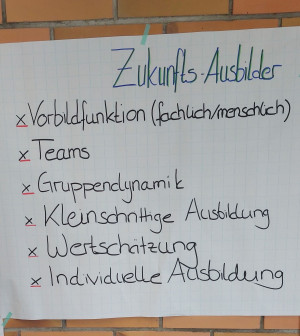 Zukunfts-Ausbilder
x Vorbildfunktion (fachlich/menschlich)
x Teams
x Gruppendynamik
x Kleinschrittige Ausbildung
x Wertschätzung
x Individuelle Ausbildung